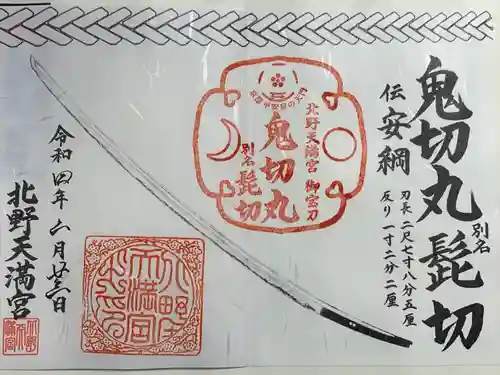 鬼切丸 別名 髭切
伝 安綱
刃長 二尺七寸八分五厘
反り 一寸二分二厘
北野天満宮 御宝刀
鬼切丸
別名
髭切
令和四年 六月廿三日
北野天満宮